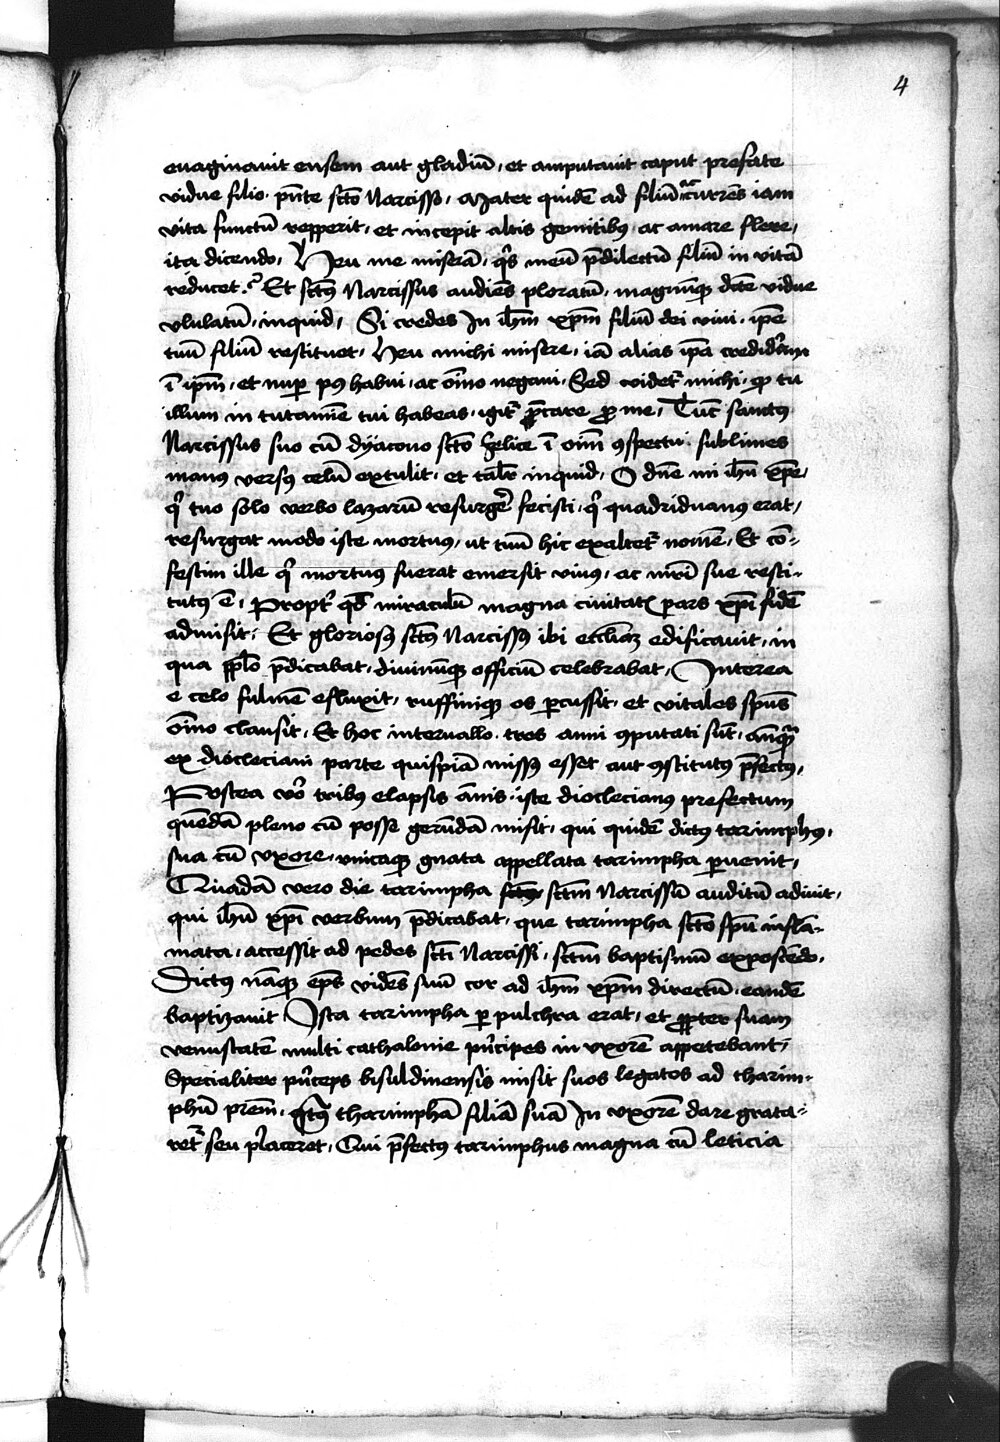 4
euaginauit ensem aut gladiū, et amputauit caput prefate
vidue filio p̄nte sctō Narcisso, Mater quidē ad filiū currēs iam
vita functū repperit, et incepit altis gemitibꝰ ac amare flere,
ita dicendo, Heu me miserā, q̇s meū p̄dilectū filiū in vitā
reducet? Et sctūs Narcissus audiēs ploratū, magnūqꝫ dc̄e vidue
vlulatū, inquid, Si credes In ih̄m xp̄m filiū dei viui, ip̄e
tuū filiū restituet, Heu michi misere, iā alias ip̄a credid'am
ī ip̄m, et nup̱ pꝰ habui, ac oīno negaui, Sed videtᷣ michi, ꝙ tu
illum in tutamīe tui habeas, igitᷣ p̄care ꝓ me, Tūc sanctꝰ
Narcissus suo cū dyacono sctō felice ī oīm ꝯspectu, sublimes
manꝰ versꝰ celū extulit, et talr̄ inquid, O dn̄e mi ih̄u xp̄e,
q' tuo solo verbo lazarū resurge' fecisti, q' quadriduanꝰ erat,
resurgat modo iste mortuꝰ, ut tuū hic exaltetᷣ nomē, Et cō-
festim ille q' mortuꝰ fuerat emersit viuꝰ, ac mr̄i sue resti-
tutꝰ ē, Proptᷣ qd̄ miraculū magna ciuitatꝭ pars xp̄i fidē
admisit, Et gloriosꝰ sctūs Narcissꝰ ibi eccliāꝫ edificauit, in
qua pplō p̄dicabat, diuinūqꝫ officiū celebrabat, Interea
e celo fulmē efluxit, ruffinūqꝫ os ꝑcussit, et vitales spūs
oīno clausit, Et hoc interuallo tres anni ꝯputati sūt, anqᷓꝫ
ex dioclecianī parte quispiā missꝰ esset aut ꝯstitutꝰ p̄fectꝰ,
Postea vo' tribꝰ elapsis ānis, iste dioclecianꝰ prefectum
quēdā pleno cū posse gerundā misit, qui quidē dictꝰ tarimphꝰ,
sua cū vxore, vnicaqꝫ gnata appellata tarimpha ꝑuenit,
Quadā vero die tarimpha sctm̄ Narcissū auditū adiuit,
qui ih̄u xp̄i verbum p̄dicabat, que tarimpha sctō spū inflā-
mata, accessit ad pedes sctī Narcissi, sctm̄ baptismū exposcēdo,
Dictꝰ nāqꝫ ep̄s vidēs suū cor ad ih̄m xp̄m directū, eandē
baptizauit, Ista tarimpha ꝑ pulchra erat, et ꝓpter suam
venustatē multi cathalonie p'ncipes in vxorē appetebant,
Specialiter p'nceps bisuldinensis misit suos legatos ad tharim-
phū prēm, tharimphā filiā suā In vxorē dare grata-
retᷣ seu placeret, Qui p̄fectꝰ tarimphus magna cū leticia